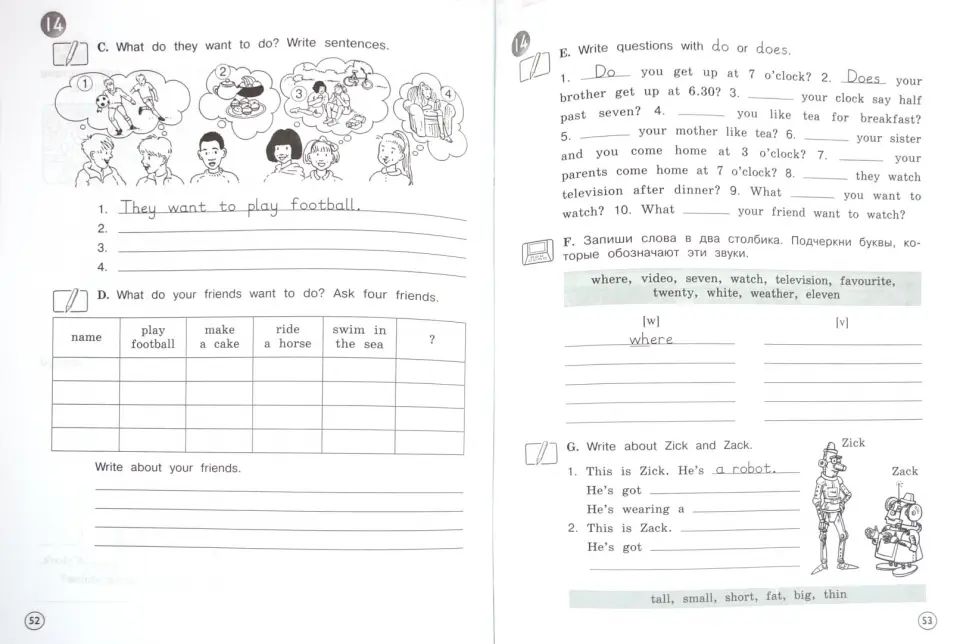 14
C. What do they want to do? Write sentences.
1
2
3
4
1. They want to play football.
2.
3.
4.
D. What do your friends want to do? Ask four friends.
name play football make a cake ride a horse swim in the sea ?
Write about your friends.
52
14
E. Write questions with do or does.
1. Do you get up at 7 o'clock? 2. Does your
brother get up at 6.30? 3. ______ your clock say half
past seven? 4. ______ you like tea for breakfast?
5. ______ your mother like tea? 6. ______ your sister
and you come home at 3 o'clock? 7. ______ your
parents come home at 7 o'clock? 8. ______ they watch
television after dinner? 9. What ______ you want to
watch? 10. What ______ your friend want to watch?
F. Запиши слова в два столбика. Подчеркни буквы, ко-
торые обозначают эти звуки.
where, video, seven, watch, television, favourite,
twenty, white, weather, eleven
[w] [v]
where
G. Write about Zick and Zack.
Zick
Zack
1. This is Zick. He's a robot.
He's got
He's wearing a
2. This is Zack.
He's got
tall, small, short, fat, big, thin
53